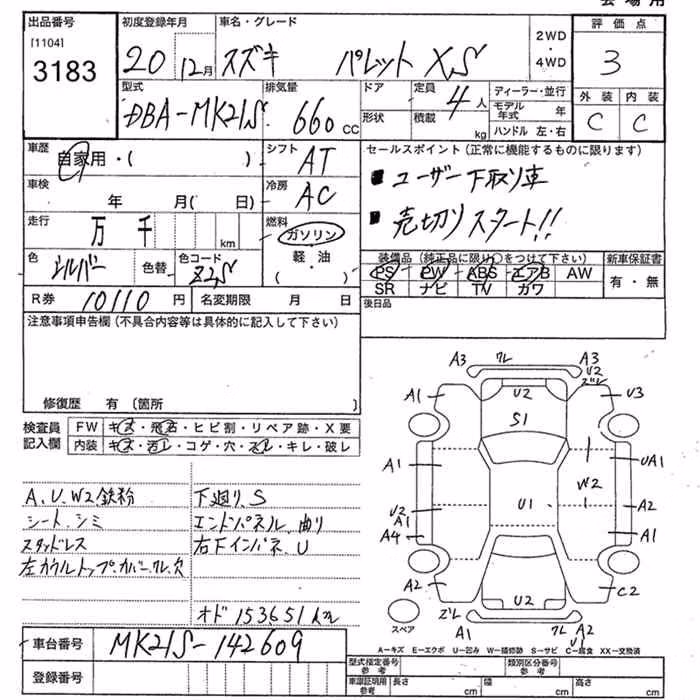 会場用
出品番号 初度登録年月 車名・グレード 評価点
[1104]
3183
20 12月 スズキ パレット XS
2WD
・
4WD
3
外装 内装
C C
型式 排気量 ドア 定員 ディーラー・並行
DBA-MK21S 660cc 4人
モデル年式 年
形状 積載 kg ハンドル 左・右
車歴 シフト セールスポイント(正常に機能するものに限ります)
自家用・( ) AT
■ユーザー下取り車
車検 冷房
年 月( 日) AC
■売切りスタート!!
走行 燃料
万 千 km ガソリン
軽・油
( )
色 色替 色コード
シルバー Z2S
装備品(純正品に限り○をつけて下さい) 新車保証書
PS PW ABS エアB AW 有・無
SR ナビ TV カワ
R券 10110円 名変期限 月 日 後日品
注意事項申告欄(不具合内容等は具体的に記入して下さい)
修復歴 有(箇所 )
検査員記入欄
FW キズ・飛石・ヒビ割・リペア跡・X要
内装 キズ・汚レ・コゲ・穴・スレ・キレ・破レ
A、U、W2鉄粉 下廻り、S
シート、シミ エンドパネル、曲り
スタッドレス 右下インパネ、U
左カウルトップ、カバー、ワレ、欠
オド 153651km
車台番号 MK21S-142609
登録番号
A3 ワレ A3
U2
ズレ
A1 U2 U3
S1
A1 UA1
W2
U2 U1 A2
A1
A4 A1
A2 C2
U2
スペア
ズレ
A1 ワレ A2
U
A－キズ E－エクボ U－凹み W－補修跡 S－サビ C－腐食 XX－交換済
型式指定番号 参考 類別区分番号 参考
車庫証明用 参考 長さ cm 幅 cm 高さ cm